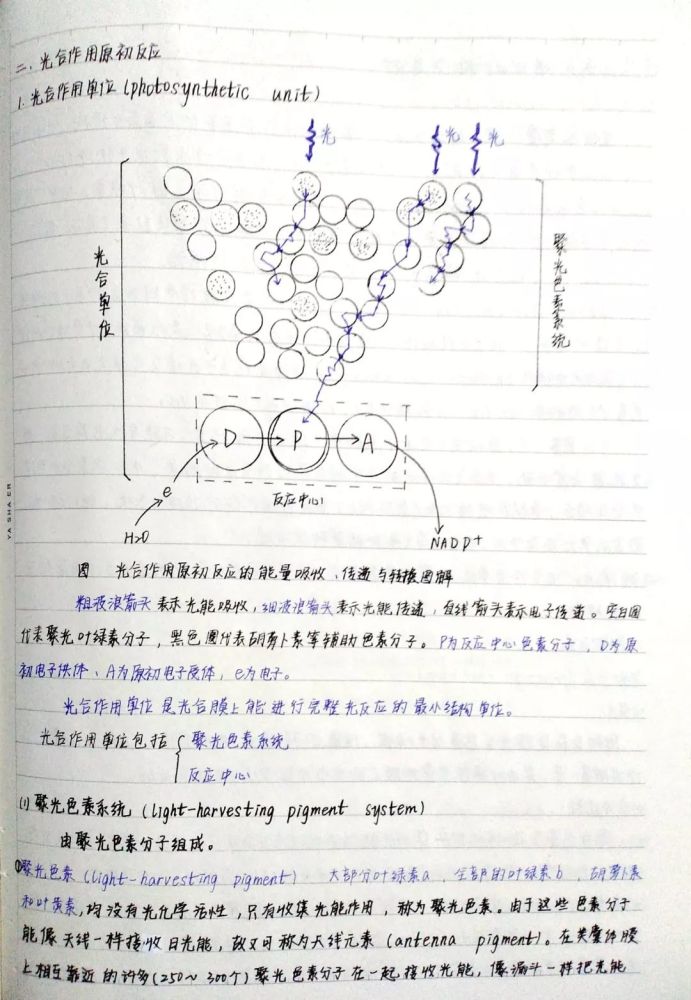 二、光合作用原初反应
1. 光合作用单位 (photosynthetic unit)
光 光 光
光合单位
聚光色素系统
D P A
e
反应中心
H2O
NADP+
图 光合作用原初反应的能量吸收、传递与转换图解
粗波浪箭头表示光能吸收,细波浪箭头表示光能传递,直线箭头表示电子传递。空白圈
代表聚光叶绿素分子,黑色圈代表胡萝卜素等辅助色素分子。P为反应中心色素分子,D为原
初电子供体、A为原初电子受体,e为电子。
光合作用单位是光合膜上能进行完整光反应的最小结构单位。
光合作用单位包括 { 聚光色素系统
反应中心
(1) 聚光色素系统 (light-harvesting pigment system)
由聚光色素分子组成。
①聚光色素 (light-harvesting pigment) 大部分叶绿素a,全部的叶绿素b,胡萝卜素
和叶黄素,均没有光化学活性,只有收集光能作用,称为聚光色素。由于这些色素分子
能像天线一样接收日光能,故又可称为天线元素 (antenna pigment)。在类囊体膜
上相互靠近的许多(250~300个)聚光色素分子在一起接收光能,像漏斗一样把光能
YA SHA ER